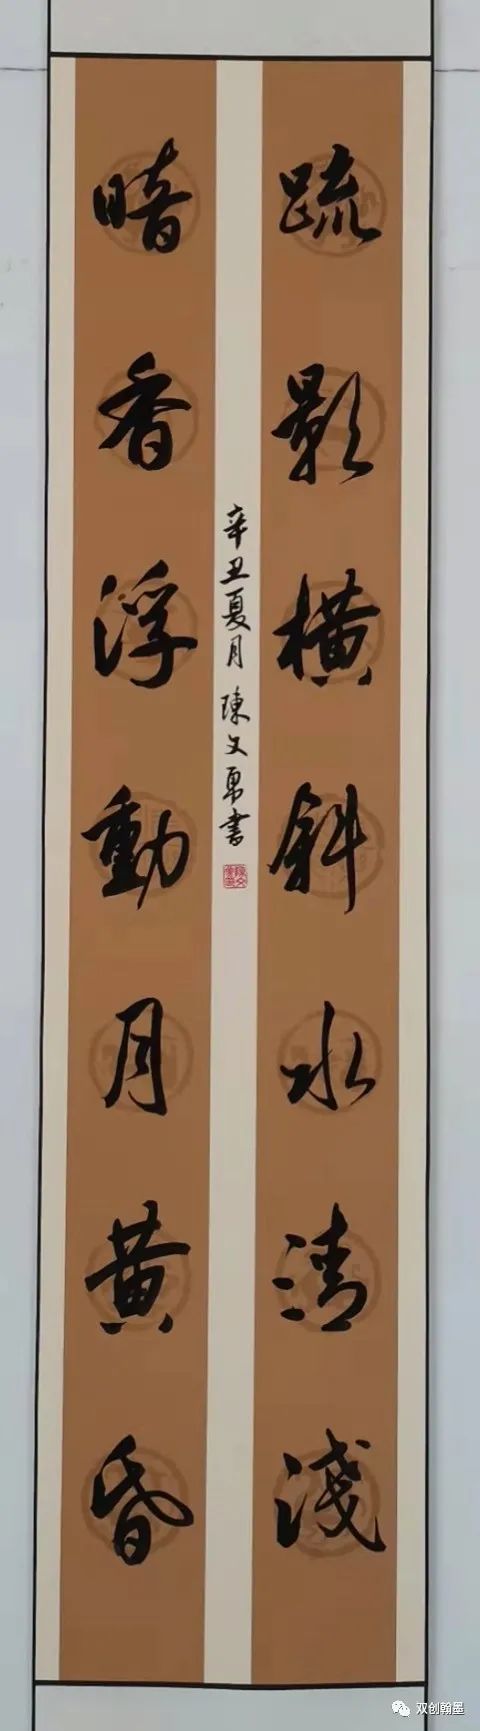 疏影橫斜水清淺
暗香浮動月黃昏
辛丑夏月 陳文勇書
双创翰墨